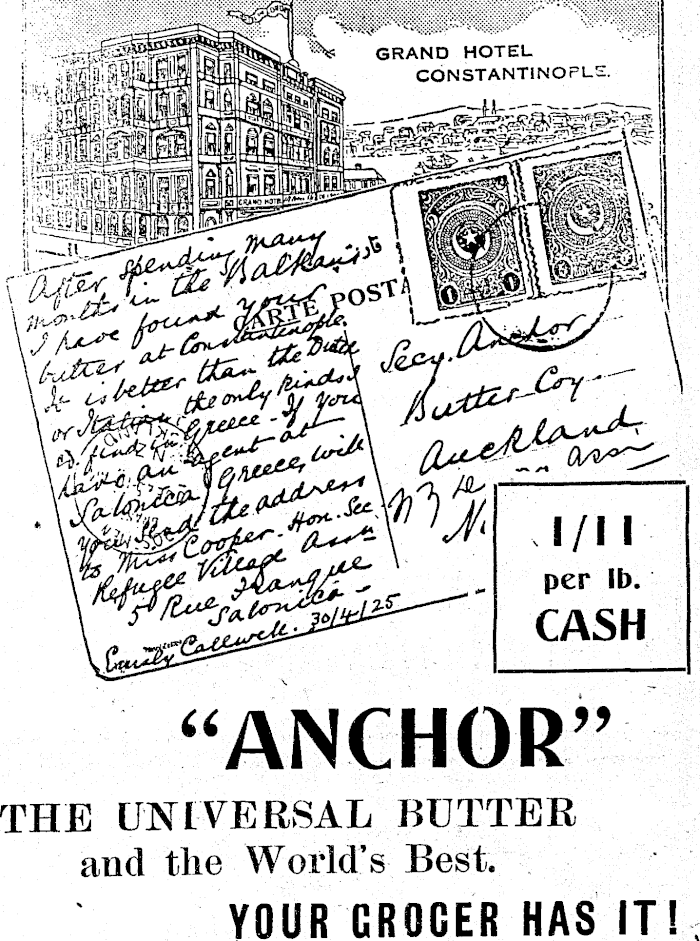 GRAND HOTEL
CONSTANTINOPLE.
GRAND HOTEL
CARTE POSTA
After spending many
months in the Balkan's
I have found your
butter at Constantinople.
It is better than the Dutch
or Italian, the only kinds I
find in Greece - If you
have an agent at
Salonica, Greece, will
you send the address
to Miss Cooper - Hon. Sec
Refugee Village Assn
5 Rue Franque
Salonica -
Emily Callwell. 30/4/25
1
Secy. Anchor
Butter Coy
Auckland
N.
1/11
per lb.
CASH
"ANCHOR"
THE UNIVERSAL BUTTER
and the World's Best.
YOUR GROCER HAS IT!